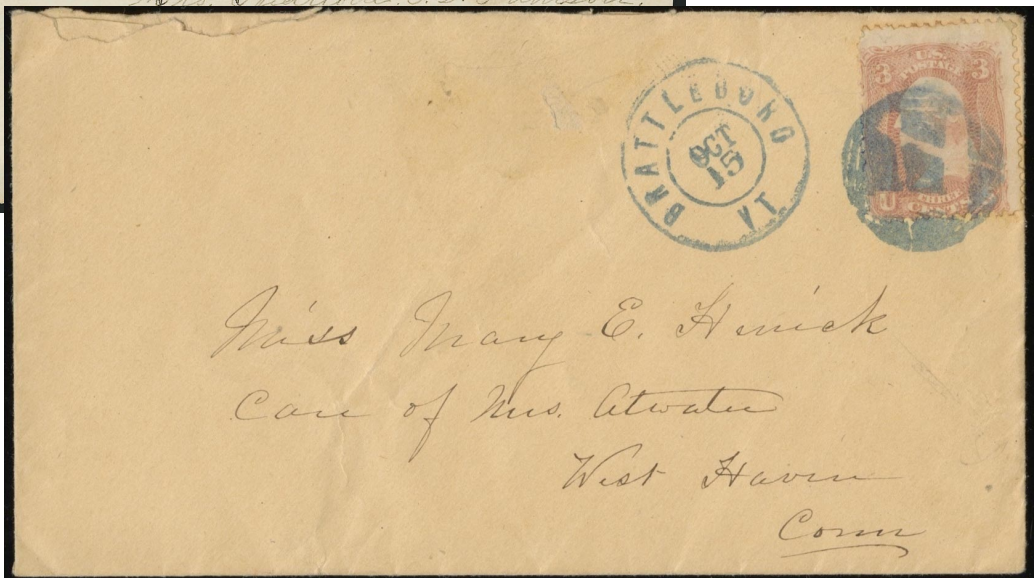 Mrs.
BRATTLEBORO
OCT
15
VT
U.S.
POSTAGE
3 3
U
THREE
CENTS
Miss Mary E. Herrick
Care of Mrs. Atwater
West Haven
Conn